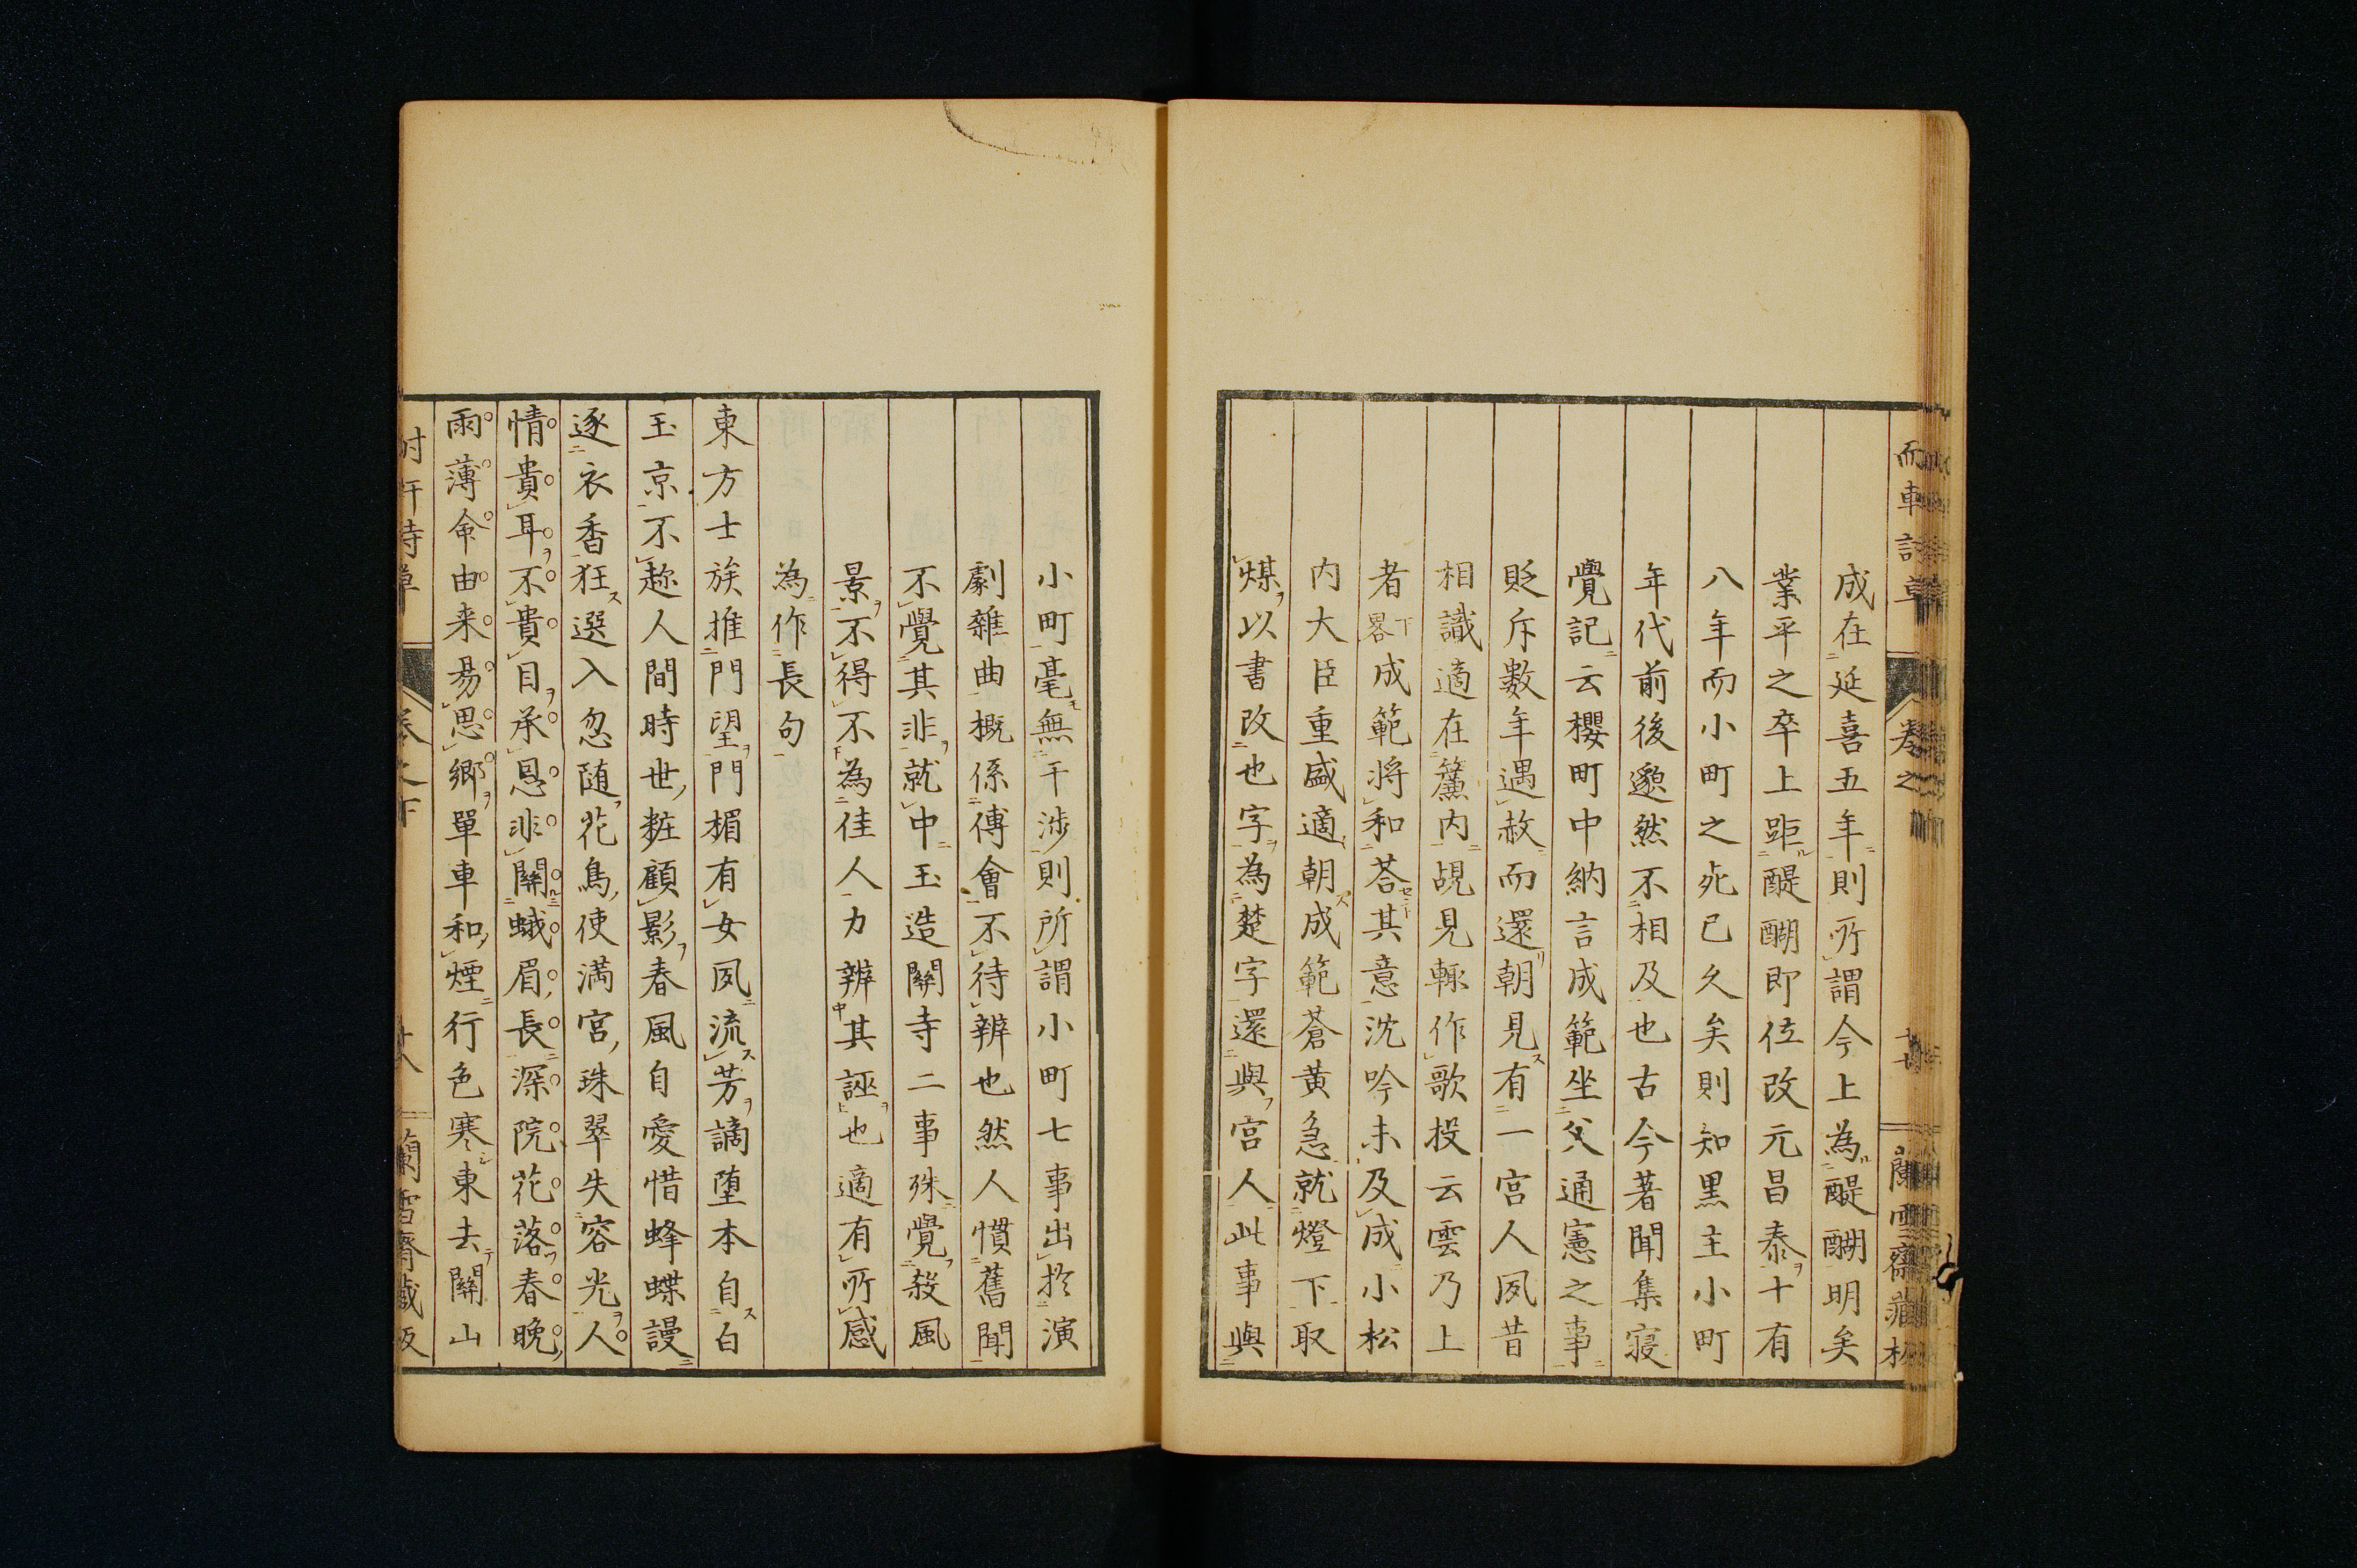 成在延喜五年則所謂今上為醍醐明矣
業平之卒上距醍醐即位改元昌泰十有
八年而小町之死已久矣則知黒主小町
年代前後邈然不相及也古今著聞集寝
覺記云櫻町中納言成範坐父通憲之事
貶斥數年遇赦而還朝見有一宮人夙昔
相識適在簾内覘見輙作歌投云雲乃上
者下畧成範將和荅其意沈吟未及成小松
内大臣重盛適朝成範蒼黄急就燈下取
煤以書改也字為楚字還與宮人此事與
小町毫無干渉則所謂小町七事出於演
劇雜曲概係傅會不待辨也然人慣舊聞
不覺其非就中玉造關寺二事殊覺殺風
景不得不為佳人力辨其誣也適有所感
為作長句
東方士族推門望門楣有女夙流芳謫堕本自白
玉京不趂人間時世粧顧影春風自愛惜蜂蝶謾
逐衣香狂選入忽随花鳥使満宮珠翠失容光人
情貴耳不貴目承恩非關蛾眉長深院花落春晩
雨薄命由来易思鄉單車和煙行色寒東去關山
卷之下
十八
蘭雪齋藏版